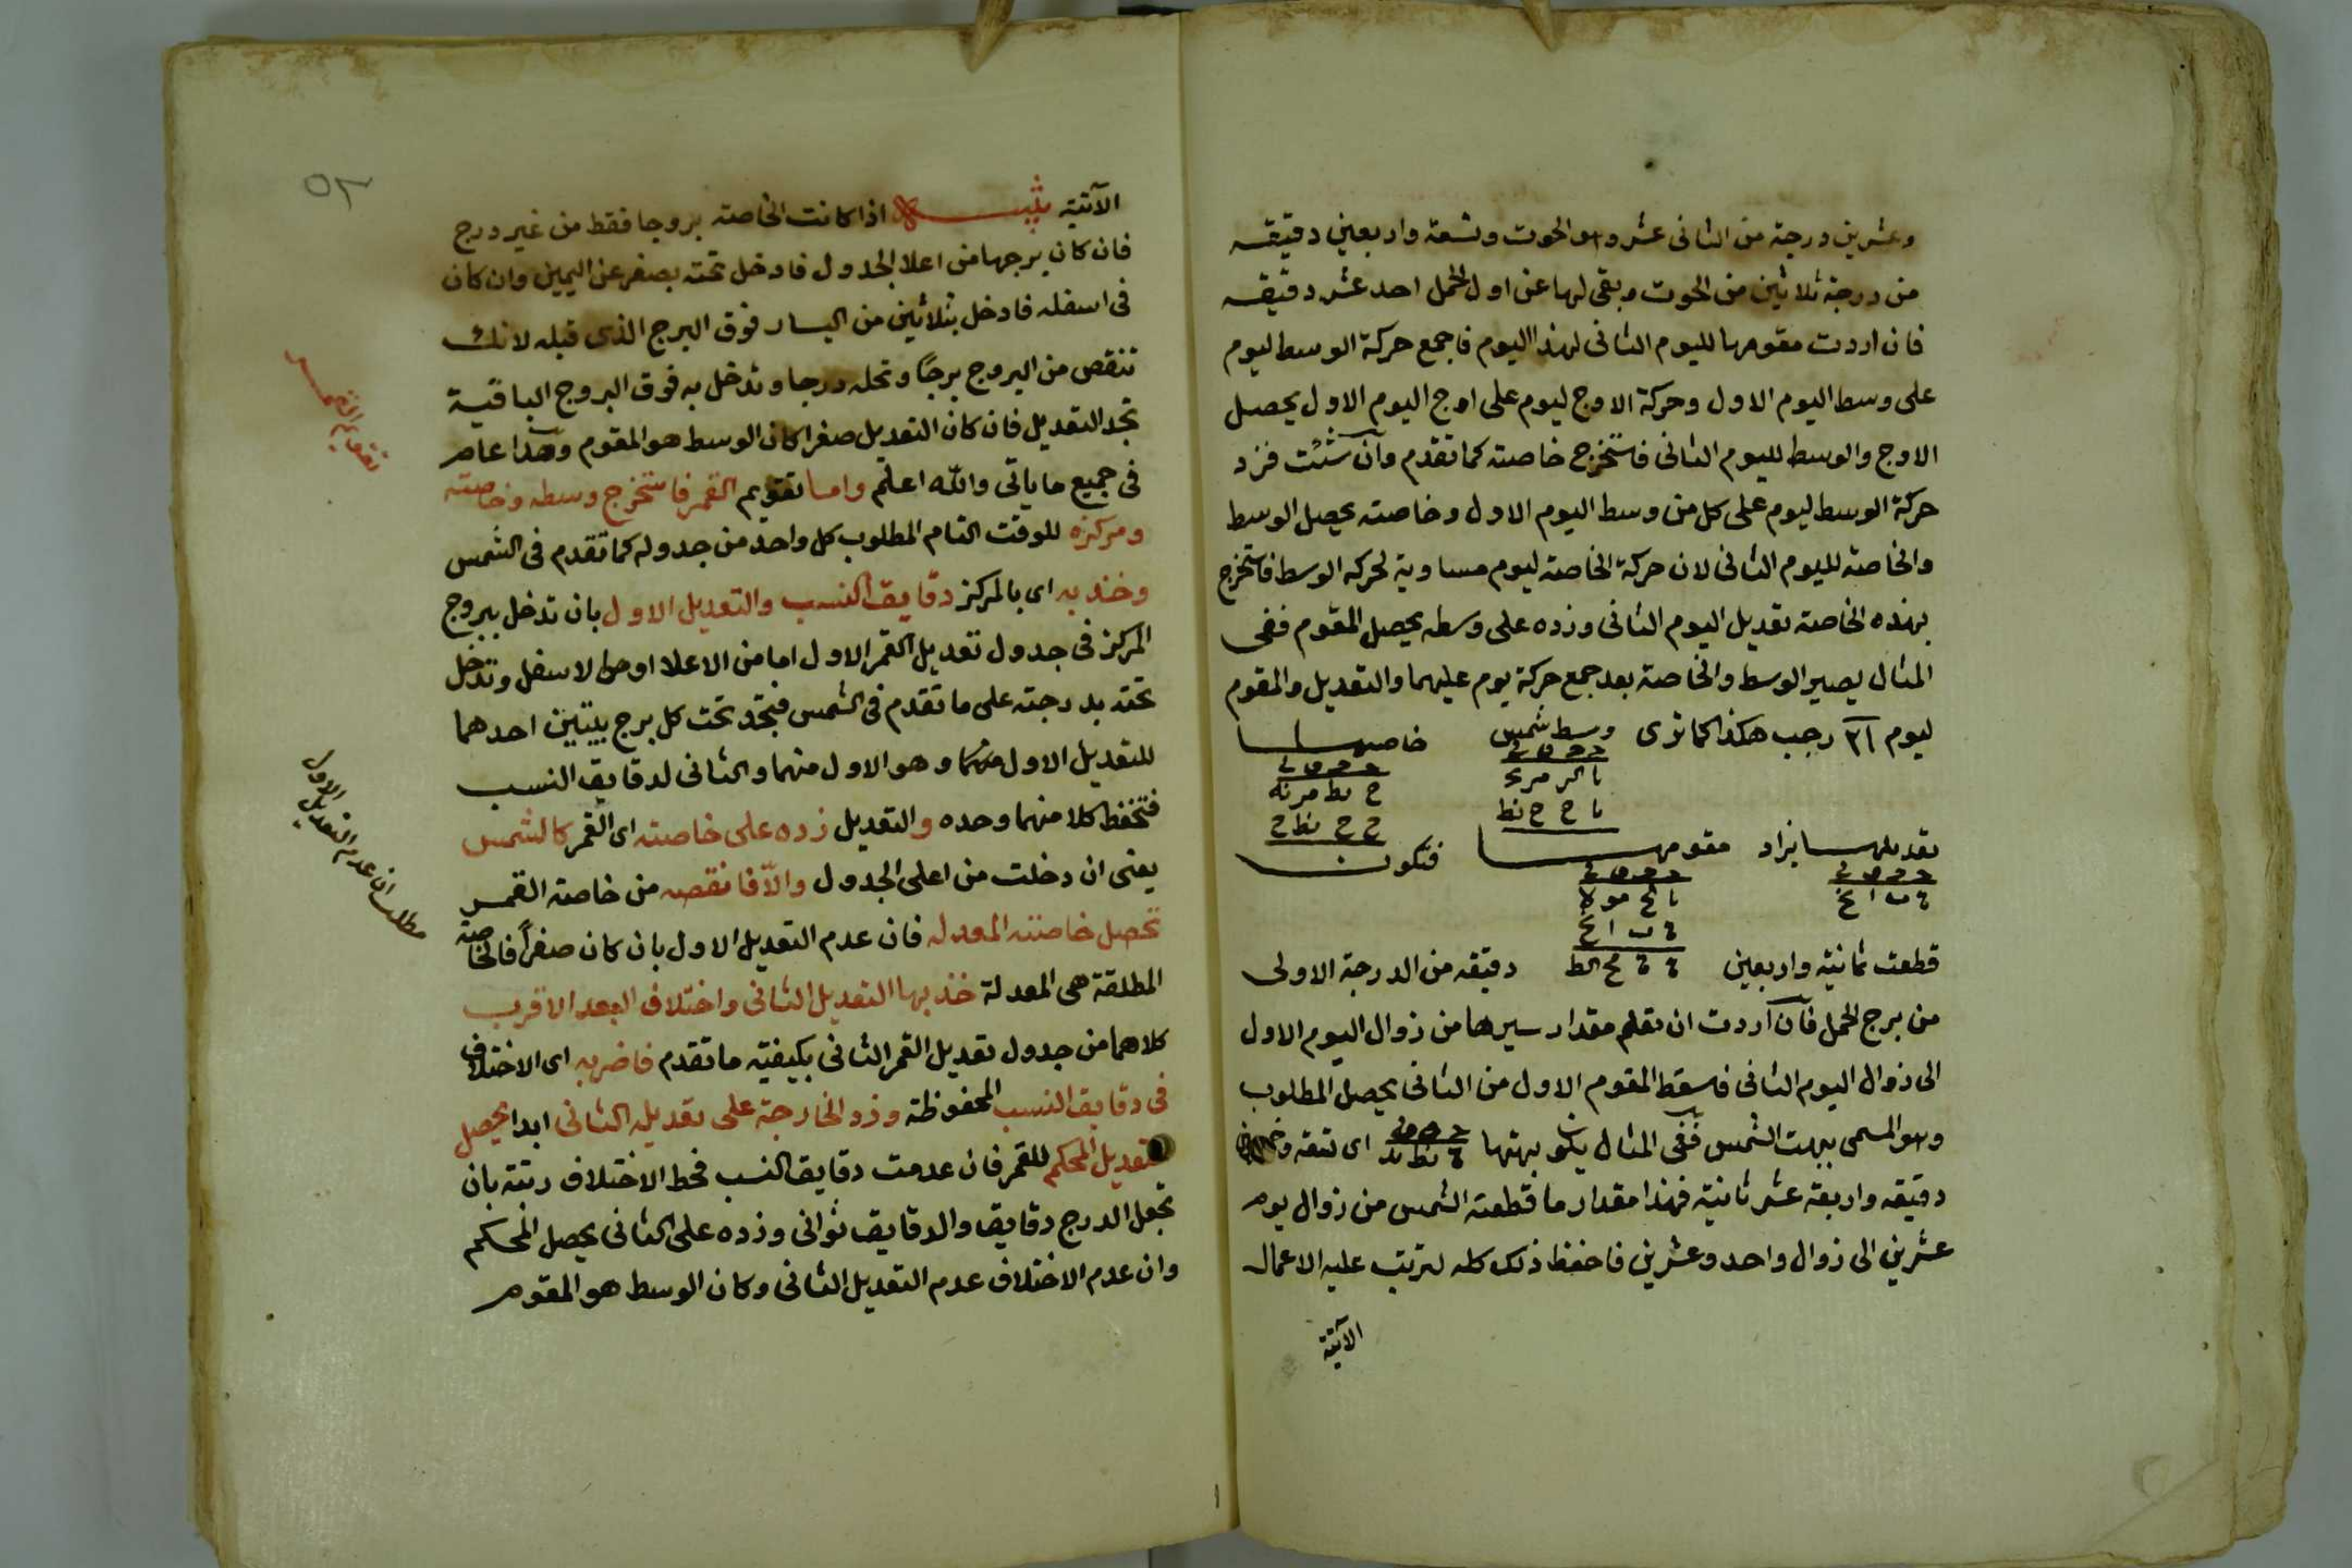 وعشرين درجة من الثانى عشر وهو الحوت وتسعة واربعين دقيقه
من درجة ثلاثين من الحوت وبقى لها عن اول الحمل احد عشر دقيقه
فان اردت مقومها لليوم الثانى لهذا اليوم فاجمع حركة الوسط ليوم
على وسط اليوم الاول وحركة الاوج ليوم على اوج اليوم الاول يحصل
الاوج والوسط لليوم الثانى فاستخرج خاصته كما تقدم وان شئت فزد
حركة الوسط ليوم على كل من وسط اليوم الاول وخاصته يحصل الوسط
والخاصة لليوم الثانى لان حركة الخاصة ليوم مساوية لحركة الوسط فاستخرج
بهذه الخاصة تعديل اليوم الثانى وزده على وسطه يحصل المقوم ففى
المثال يصير الوسط والخاصة بعد جمع حركة يوم عليهما والتعديل والمقوم
ليوم ٢١ رجب هكذا كما ترى وسط شمس خاصتها
تعديلها يزاد مقومها فتكون
قطعت ثمانية واربعين دقيقه من الدرجة الاولى
من برج الحمل فان اردت ان تعلم مقدار سيرها من زوال اليوم الاول
الى زوال اليوم الثانى فاسقط المقوم الاول من الثانى يحصل المطلوب
وهو المسمى ببهت الشمس ففى المثال يكون بهتها اى تسعة
دقيقه واربعة عشر ثانية فهذا مقدار ما قطعته الشمس من زوال يوم
عشرين الى زوال واحد وعشرين فاحفظ ذلك كله لترتب عليه الاعمال
الآتية
٥٢
الآتية تنبيه اذا كانت الخاصة بروجا فقط من غير درج
فان كان برجها من اعلا الجدول فادخل تحته بصفر عن اليمين وان كان
فى اسفله فادخل بثلاثين من اليسار فوق البرج الذى قبله لانك
تنقص من البروج برجا وتحله درجا وتدخل به فوق البروج الباقية
تجد التعديل فان كان التعديل صفرا كان الوسط هو المقوم وهذا عام
فى جميع ما ياتى والله اعلم واما تقويم القمر فاستخرج وسطه وخاصته
ومركزه للوقت التام المطلوب كل واحد من جدوله كما تقدم فى الشمس
وخذ به اى بالمركز دقايق النسب والتعديل الاول بان تدخل ببروج
المركز فى جدول تعديل القمر الاول اما من الاعلا او من الاسفل وتدخل
تحته بدرجته على ما تقدم فى الشمس فتجد تحت كل برج بيتين احدهما
للتعديل الاول منهما وهو الاول منهما والثانى لدقايق النسب
فتحفظ كلا منهما وحده والتعديل زده على خاصته اى القمر كالشمس
يعنى ان دخلت من اعلى الجدول والا فانقصه من خاصة القمر
تحصل خاصته المعدله فان عدم التعديل الاول بان كان صفرا فالخاصة
المطلقة هى المعدلة خذ بها التعديل الثانى واختلاف البعد الاقرب
كلاهما من جدول تعديل القمر الثانى بكيفية ما تقدم فاضربه اى الاختلاف
فى دقايق النسب المحفوظة وزد الخارجة على تعديله الثانى ابدا يحصل
تعديل المحكم للقمر فان عدمت دقايق النسب فحط الاختلاف رتبة بان
تجعل الدرج دقايق والدقايق ثوانى وزده على الثانى يحصل المحكم
وان عدم الاختلاف عدم التعديل الثانى وكان الوسط هو المقوم
مطلب ان عدم التعديل الاول